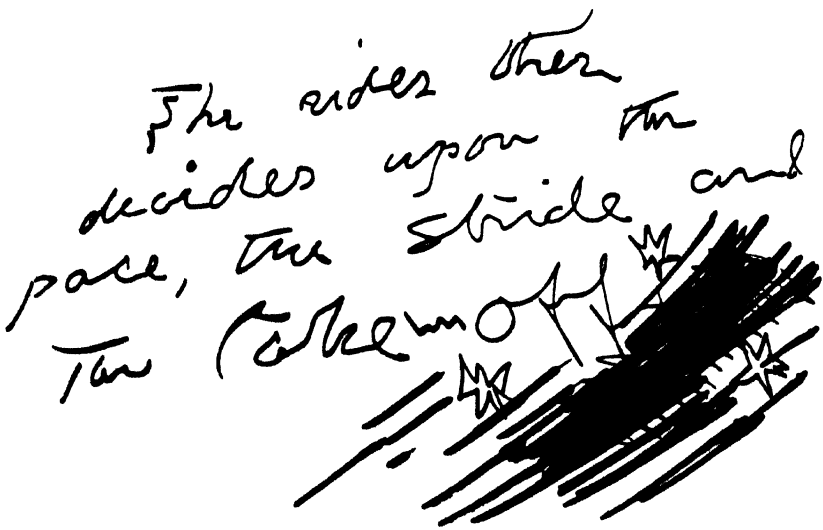 The rider then
decides upon the
pace, the stride and
the take-off